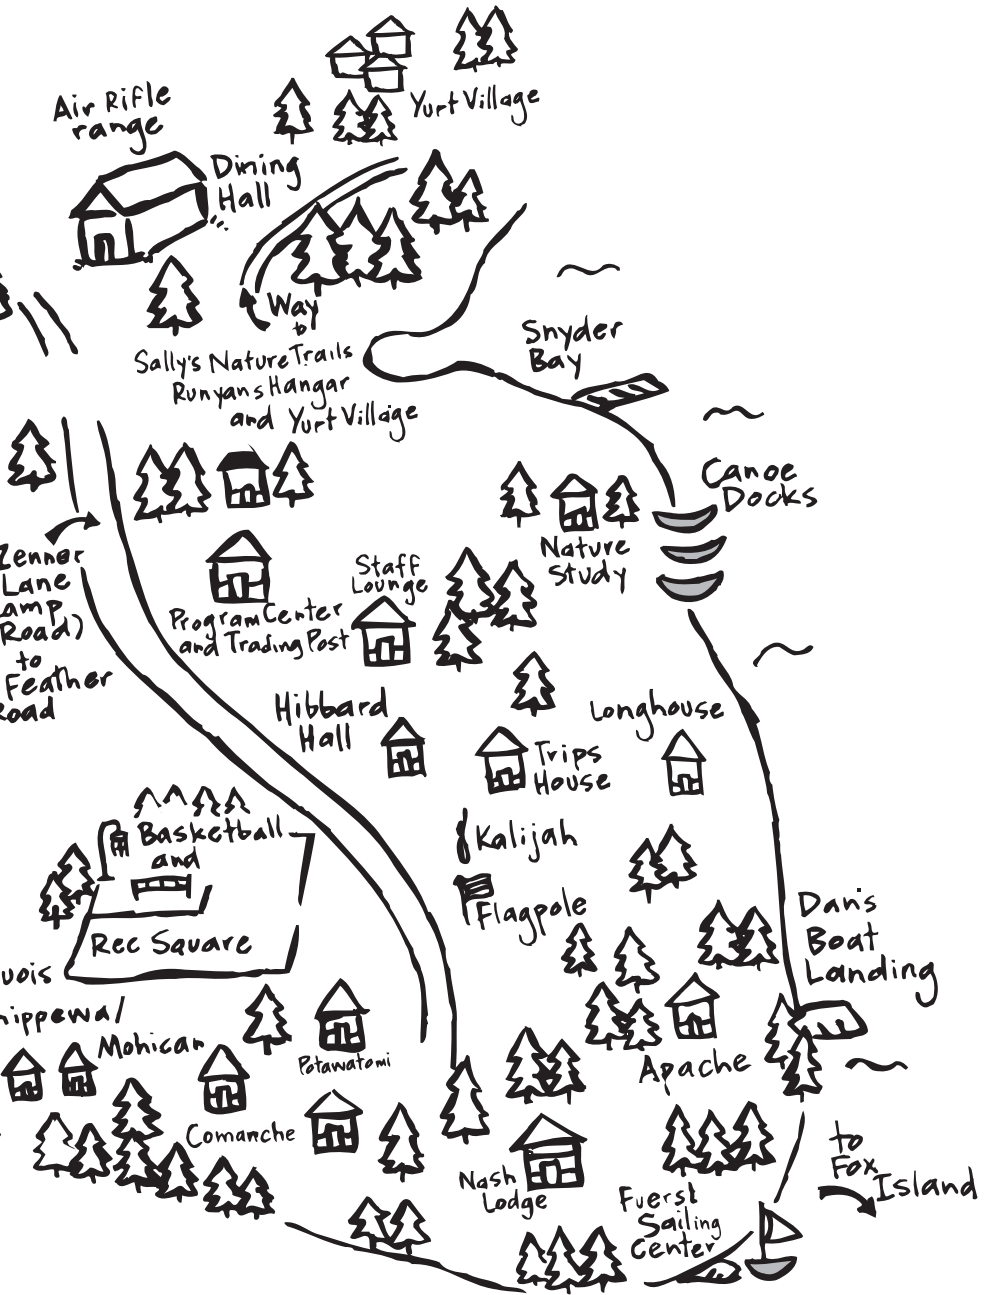 Yurt Village
Air Rifle
range
Dining
Hall
Way
to
Sally's Nature Trails
Runyans Hangar
and Yurt Village
Snyder
Bay
Canoe
Docks
Nature
Study
Zenner
Lane
amp
Road)
to
Feather
Road
Staff
Lounge
Program Center
and Trading Post
Hibbard
Hall
Trips
House
Longhouse
Kalijah
Flagpole
Basketball
and
Rec Square
Dan's
Boat
Landing
uois
hippewa/
Mohican
Potawatomi
Comanche
Apache
Nash
Lodge
Fuerst
Sailing
Center
to
Fox
Island